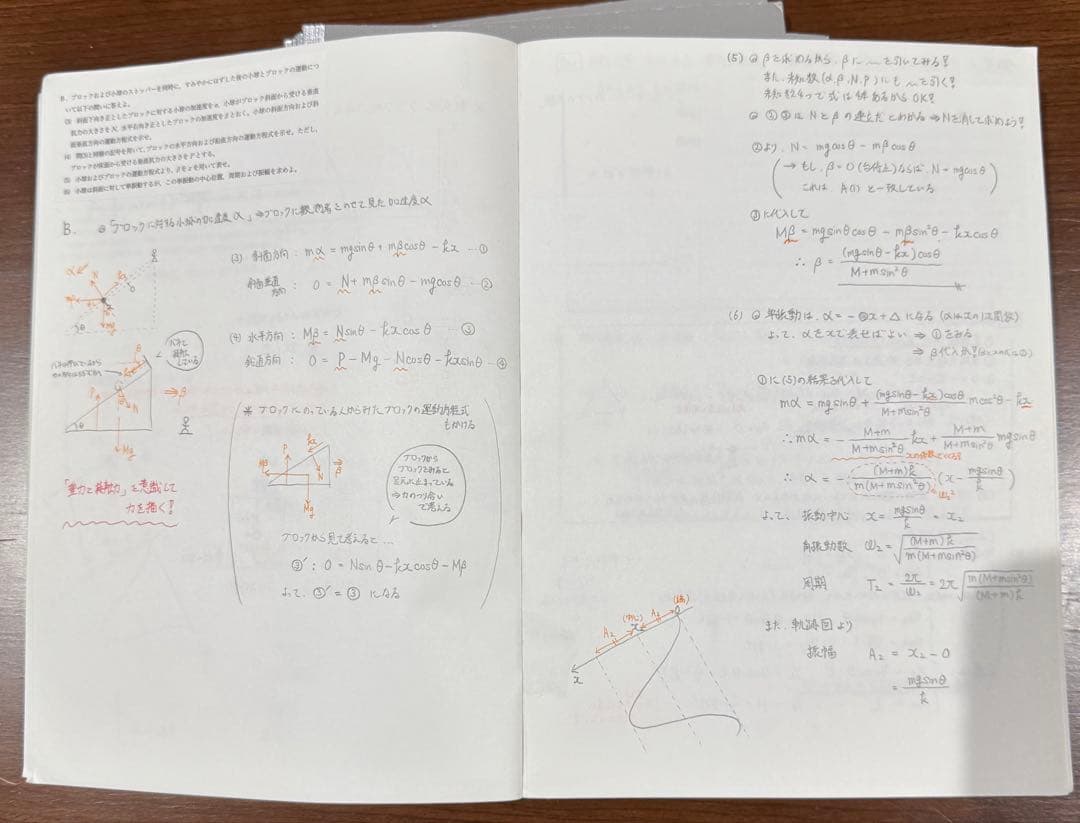 B. ブロックおよび小球のストッパーを同時に、すみやかにはずした後の小球とブロックの運動につ
いて以下の問いに答えよ。
(3) 斜面下向き正としたブロックに対する小球の加速度をα、小球がブロック斜面から受ける垂直
抗力の大きさをN、水平右向き正としたブロックの加速度をβとおく。小球の斜面方向および斜
面垂直方向の運動方程式を示せ。
(4) 問(3)と同様の記号を用いて、ブロックの水平方向および鉛直方向の運動方程式を示せ。ただし、
ブロックが床面から受ける垂直抗力の大きさをPとする。
(5) 小球およびブロックの運動方程式より、βをxを用いて表せ。
(6) 小球は斜面に対して単振動するが、この単振動の中心位置、周期および振幅を求めよ。
B. ◎「ブロックに対する小球の加速度α」⇒ブロックに観測者をのせて見た加速度α
(3) 斜面方向: mα = mgsinθ + mβcosθ - kx … ①
斜面垂直方向: 0 = N + mβsinθ - mgcosθ … ②
(4) 水平方向: Mβ = Nsinθ - kxcosθ … ③
鉛直方向: 0 = P - Mg - Ncosθ - kxsinθ … ④
バネと接触している
θ
⇒β
Mg
「重力と接触力」を意識して
力を描く!
※ ブロックにのっている人からみたブロックの運動方程式
もかける
P
kx
Mβ
N
⇒β
Mg
ブロックから
ブロックをみると
完全に止まっている
⇒力のつり合い
で考える
ブロックから見て考えると…
③′: 0 = Nsinθ - kxcosθ - Mβ
よって、③′=③ になる
(5) ◎ βを求めるから、βに〜を引いてみる!
また、未知数(α,β,N,P)にも〜を引く!
未知数4つで式は4本あるからOK!
◎ ②,③はNとβの連立だとわかる ⇒ Nを消して求めよう!
②より、N = mgcosθ - mβsinθ
(→ もし、β=0(台静止)ならば、N = mgcosθ
これは、A(1)と一致している)
③に代入して
Mβ = mgsinθcosθ - mβsin²θ - kxcosθ
∴ β = (mgsinθ-kx)cosθ / M+msin²θ
(6) ◎ 単振動は、α = -●x + △ になる (αはxの1次関数)
よって、αをxで表せばよい ⇒ ①をみる
①に(5)の結果を代入して
mα = mgsinθ + (mgsinθ-kx)cosθ / M+msin²θ mcosθ - kx
∴ mα = - M+m / M+msin²θ kx + M+m / M+msin²θ mgsinθ
∴ α = - (M+m)k / m(M+msin²θ) (x - mgsinθ / k)
= ω₂²
よって、振動中心 x = mgsinθ / k = x₂
角振動数 ω₂ = √(M+m)k / m(M+msin²θ)
周期 T₂ = 2π / ω₂ = 2π √m(M+msin²θ) / (M+m)k
また、軌跡図より
振幅 A₂ = x₂ - 0
= mgsinθ / k
A₂
x₂
A₂
0
x